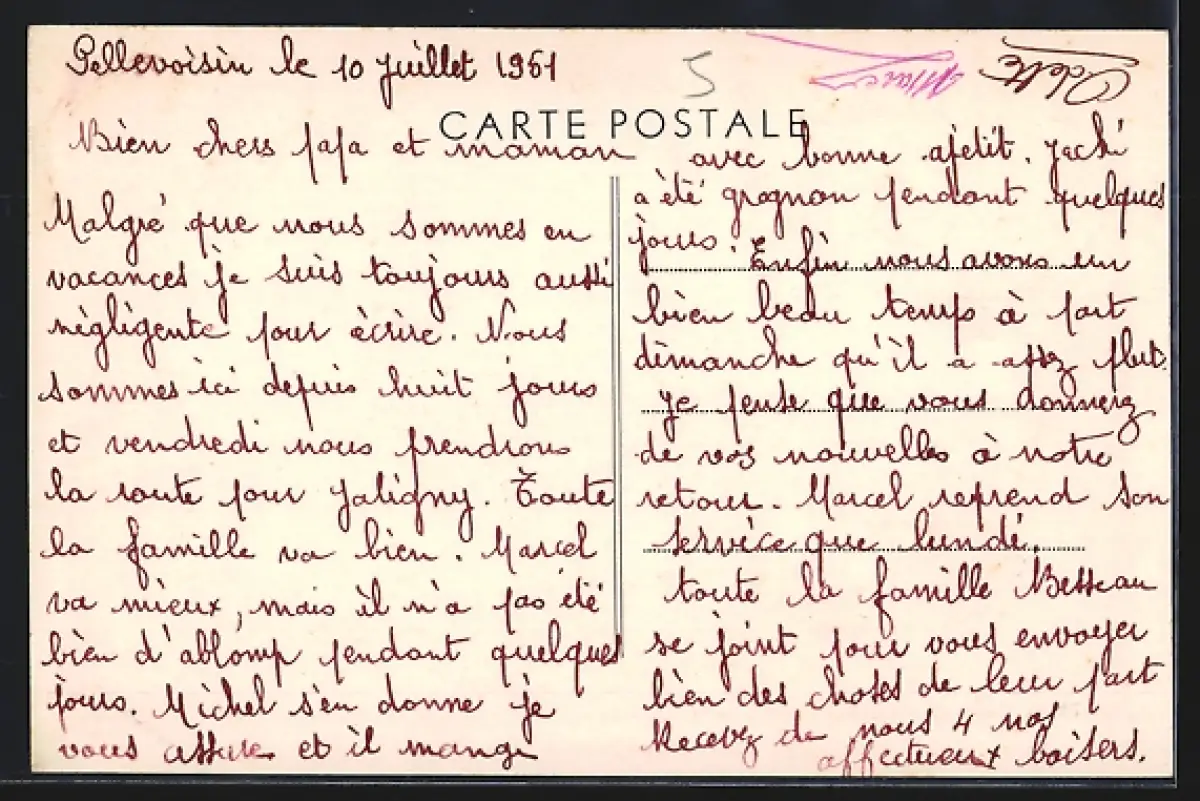 Pellevoisin le 10 Juillet 1961
5
Marcel
Odette
CARTE POSTALE
Bien chers papa et maman
Malgré que nous sommes en
vacances je suis toujours aussi
négligente pour écrire. Nous
sommes ici depuis huit jours
et vendredi nous prendrons
la route pour Jaligny. Toute
la famille va bien. Marcel
va mieux, mais il n'a pas été
bien d'ablomp pendant quelques
jours. Michel s'en donne je
vous assure et il mange
avec bonne apetit. Jacki
a été grognon pendant quelques
jours. Enfin nous avons un
bien beau temps à part
dimanche qu'il a assez plut.
Je pense que vous donnerez
de vos nouvelles à notre
retour. Marcel reprend son
service que lundi.
toute la famille Besseau
se joint pour vous envoyer
bien des choses de leur part
Recevez de nous 4 nos
affectueux baisers.